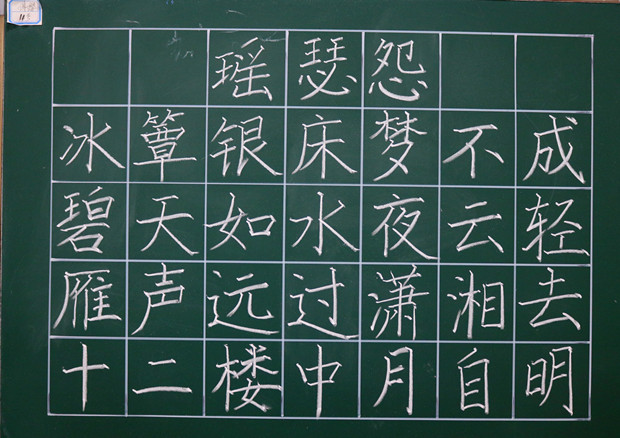 瑶瑟怨
冰簟银床梦不成
碧天如水夜云轻
雁声远过潇湘去
十二楼中月自明